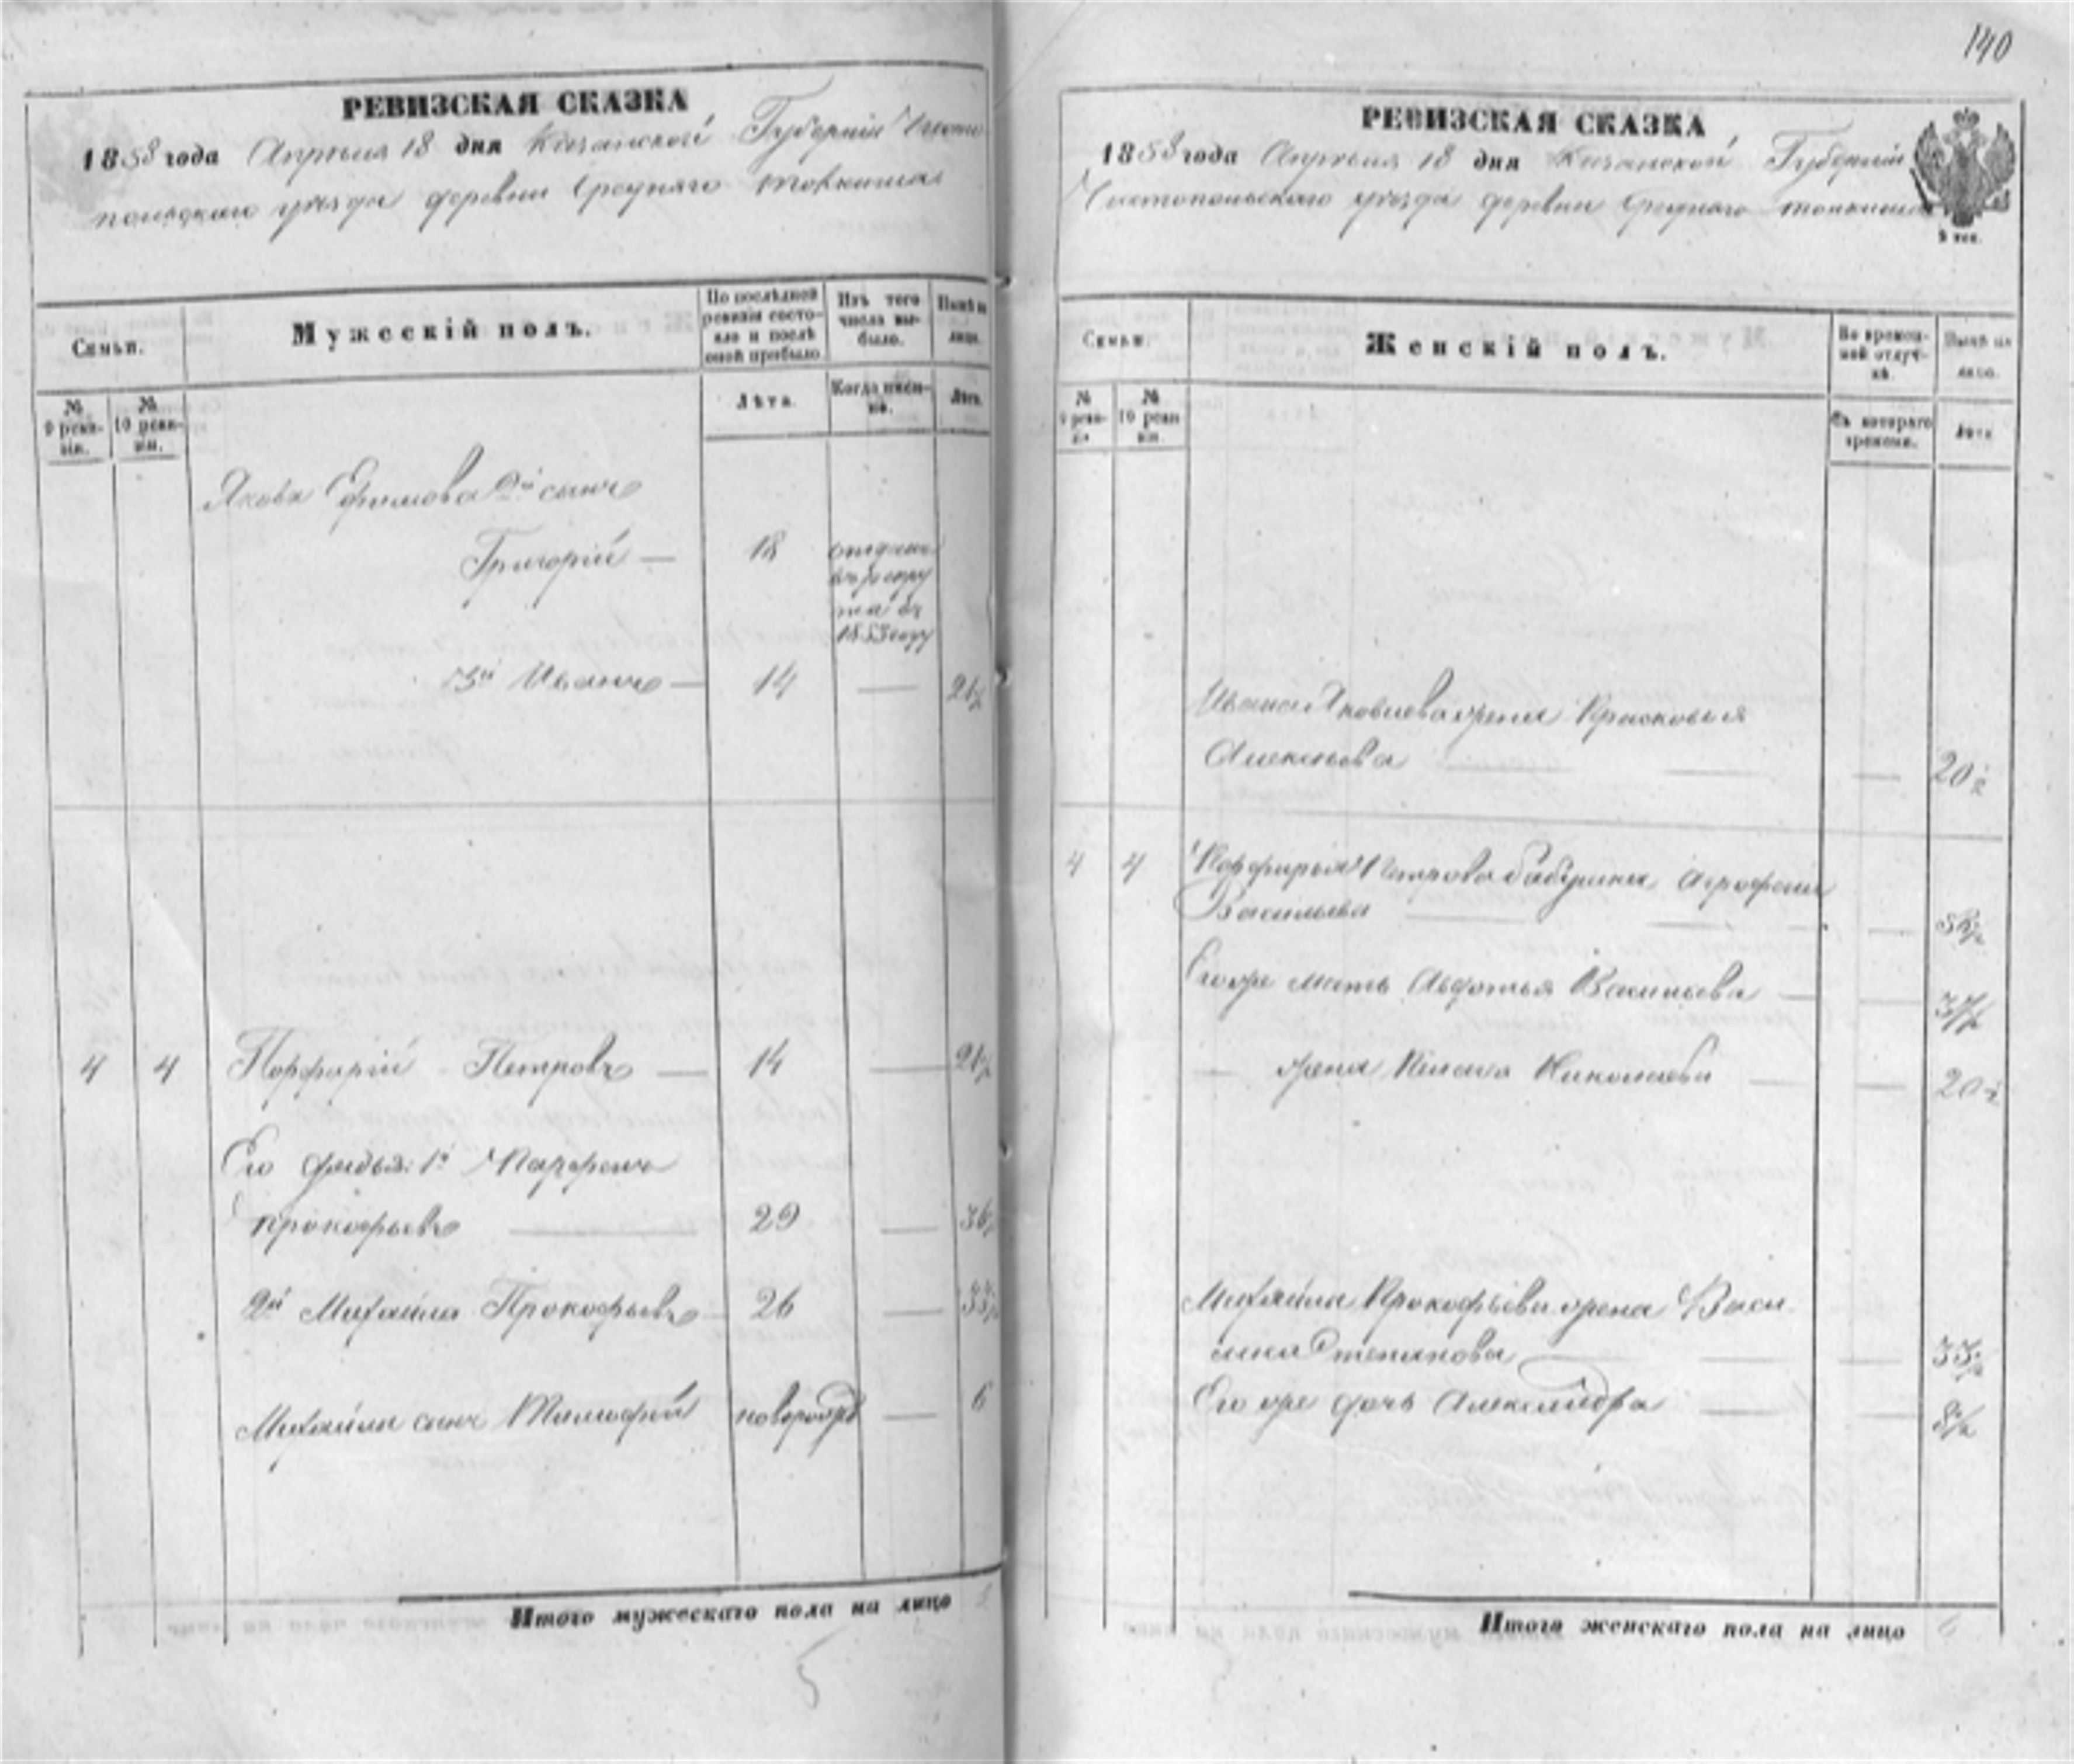 140
РЕВИЗСКАЯ СКАЗКА
1858 года Апреля 18 дня Казанской Губернiи Чисто
польскаго уезда деревни Средняго Толкиша
Семьи.
Мужескiй полъ.
По послѣдней
ревизiи состо-
яло и послѣ
оной прибыло.
Изъ того
числа вы-
было.
Нынѣ на
лицо.
№
9 реви-
зiи.
№
10 реви-
зiи.
Лѣта.
Когда имен-
но.
Лѣта.
Якова Ефимова 2й сынъ
Григорiй — 18 отданъ
въ рекру
та въ
1853 году
3й Иванъ — 14 — 21½
4 4 Порфирiй Петровъ — 14 — 21½
Его дядья: 1й Парфенъ
Прокофьевъ — 29 — 36½
2й Михайла Прокофьевъ 26 — 33½
Михайлы сынъ Тимофей новорожд — 6
Итого мужескаго пола на лицо
5
РЕВИЗСКАЯ СКАЗКА
1858 года Апреля 18 дня Казанской Губернiи
Чистопольскаго уезда деревни Средняго Толкиша
Семьи.
Женскiй полъ.
Во времен-
ной отлуч-
кѣ.
Нынѣ на
лицо.
№
9 реви-
зiи
№
10 реви-
зiи.
Съ котораго
времени.
Лѣта
Ивана Яковлева жена Прасковья
Алексеева — — — 20½
4 4 Порфирья Петрова бабушка Агрофена
Васильева — — —
Его же мать Авдотья Васильева — — 37½
— жена Пелагея Николаева — — 20½
Михайлы Прокофьева жена Васи
лиса Степанова — — — 33½
Его же дочь Александра — — 8½
Итого женскаго пола на лицо